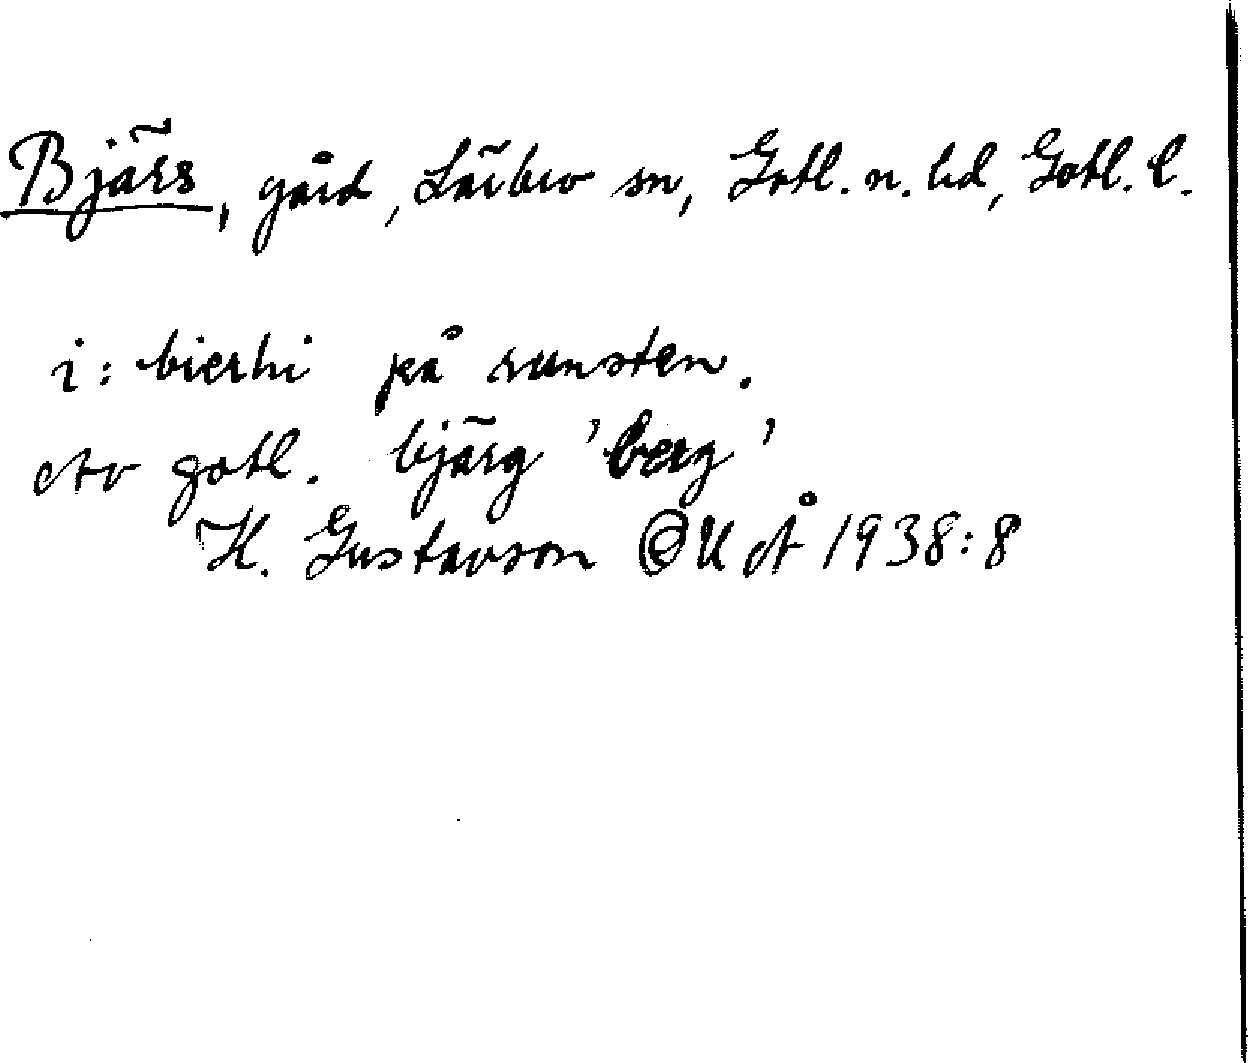 Bjärs, gård, Lärbro sn, Gotl. n. hd, Gotl. l.
i: bierhi på runsten.
Av gotl. bjärg 'berg'
H. Gustavson OUÅ 1938:8